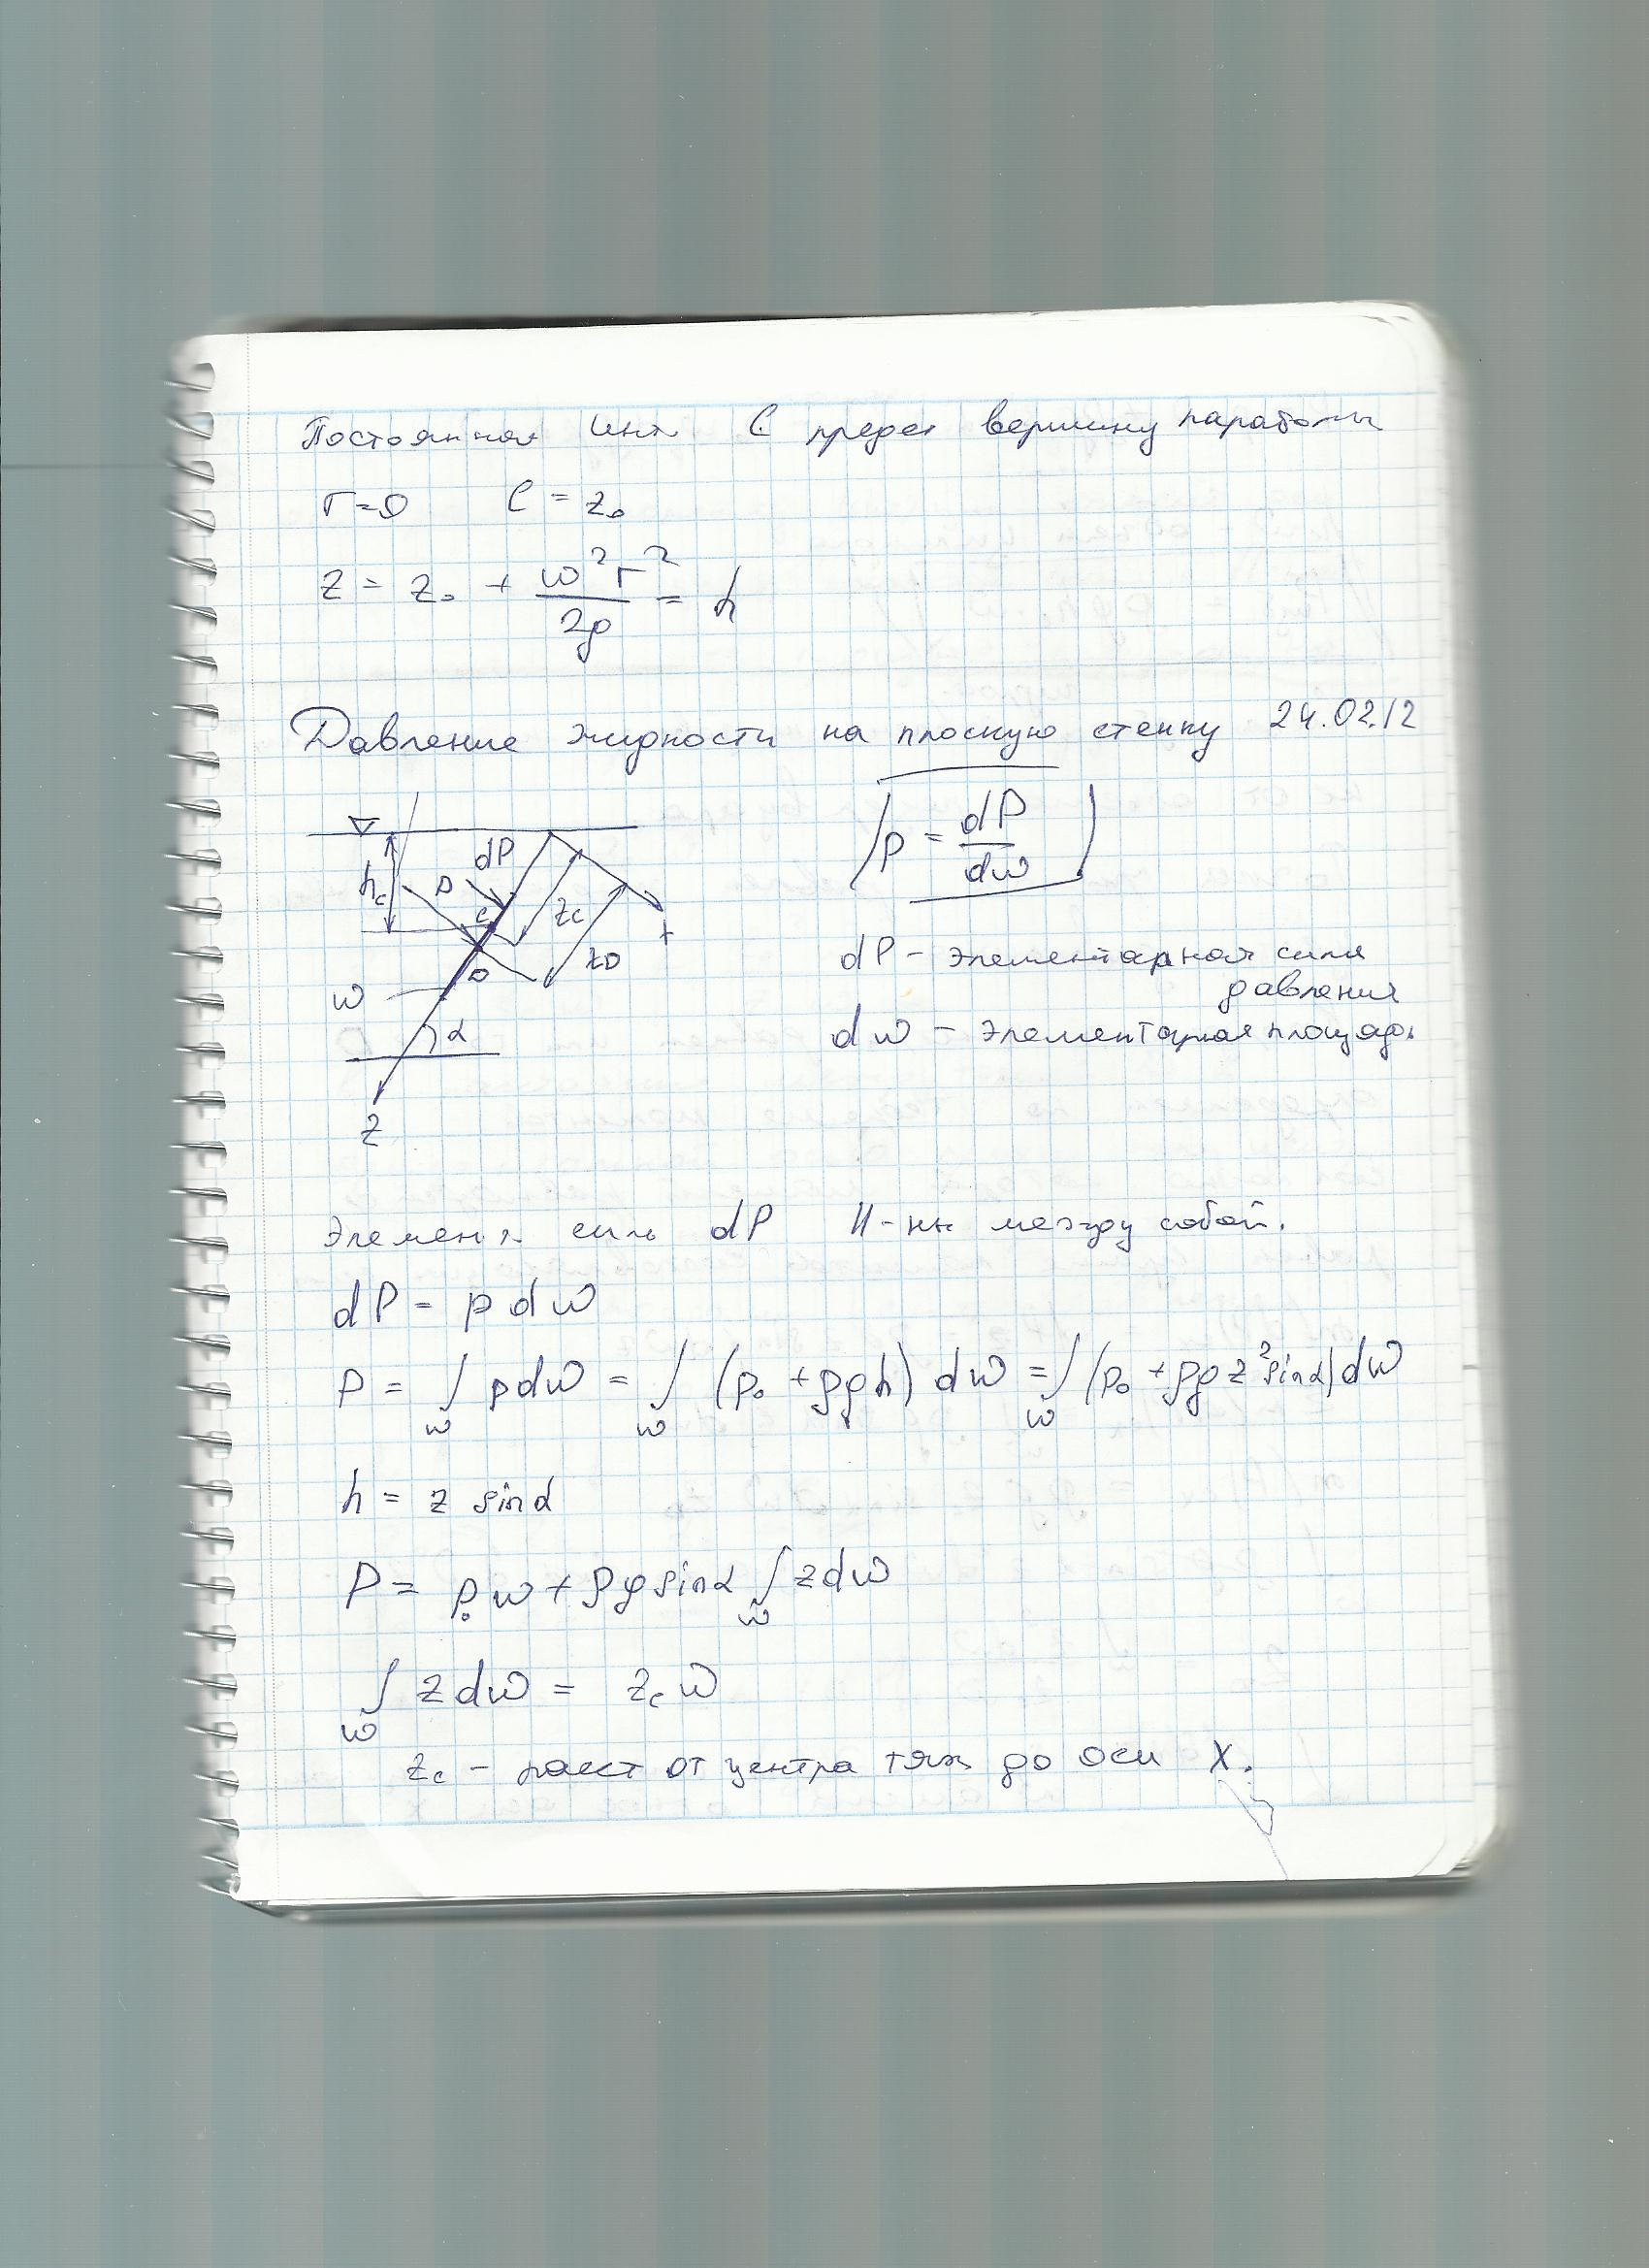 Постоянная инт C предел вершину параболы
r=0 C = z₀
z = z₀ + ω²r²/2g = h
Давление жидкости на плоскую стенку 24.02.12
p = dP/dω
dP
hc
P
c
zc
zD
D
x
ω
α
z
dP - элементарная сила
давления
dω - элементарная площадь
Элемент. силы dP II-ны между собой.
dP = p dω
P = ∫ω p dω = ∫ω (p₀ + ρgh) dω = ∫ω (p₀ + ρg z² sinα) dω
h = z sinα
P = p₀ω + ρg sinα ∫ω z dω
∫ω z dω = zc ω
zc - расст от центра тяж до оси X.